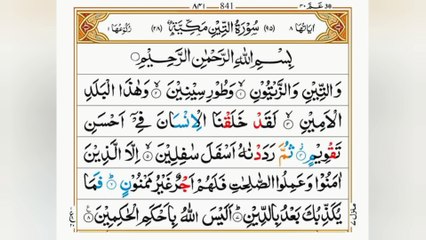 ٨/٣١ 841 عم ٣٠ 30
اٰيَاتُهَا ٨ (٩٥) سُوْرَةُ التِّيْنِ مَكِّيَّةٌ (٢٨) رُكُوْعُهَا ١
بِسْمِ اللّٰهِ الرَّحْمٰنِ الرَّحِيْمِ
وَالتِّيْنِ وَالزَّيْتُوْنِ ۙ وَطُوْرِ سِيْنِيْنَ ۙ وَهٰذَا الْبَلَدِ
الْاَمِيْنِ ۙ لَقَدْ خَلَقْنَا الْاِنْسَانَ فِيْۤ اَحْسَنِ
تَقْوِيْمٍ ۫ ثُمَّ رَدَدْنٰهُ اَسْفَلَ سٰفِلِيْنَ ۙ اِلَّا الَّذِيْنَ
اٰمَنُوْا وَعَمِلُوا الصّٰلِحٰتِ فَلَهُمْ اَجْرٌ غَيْرُ مَمْنُوْنٍ ؕ فَمَا
يُكَذِّبُكَ بَعْدُ بِالدِّيْنِ ؕ اَلَيْسَ اللّٰهُ بِاَحْكَمِ الْحٰكِمِيْنَ